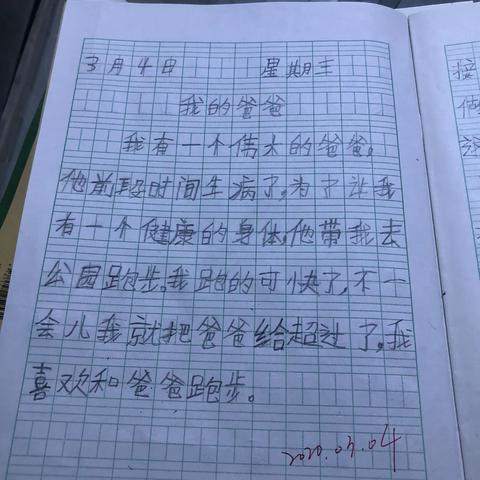 3月4日 星期三
我的爸爸
我有一个伟大的爸爸,
他前段时间生病了,为了让我
有一个健康的身体,他带我去
公园跑步。我跑的可快了,不一
会儿我就把爸爸给超过了,我
喜欢和爸爸跑步。
2020.03.04
接